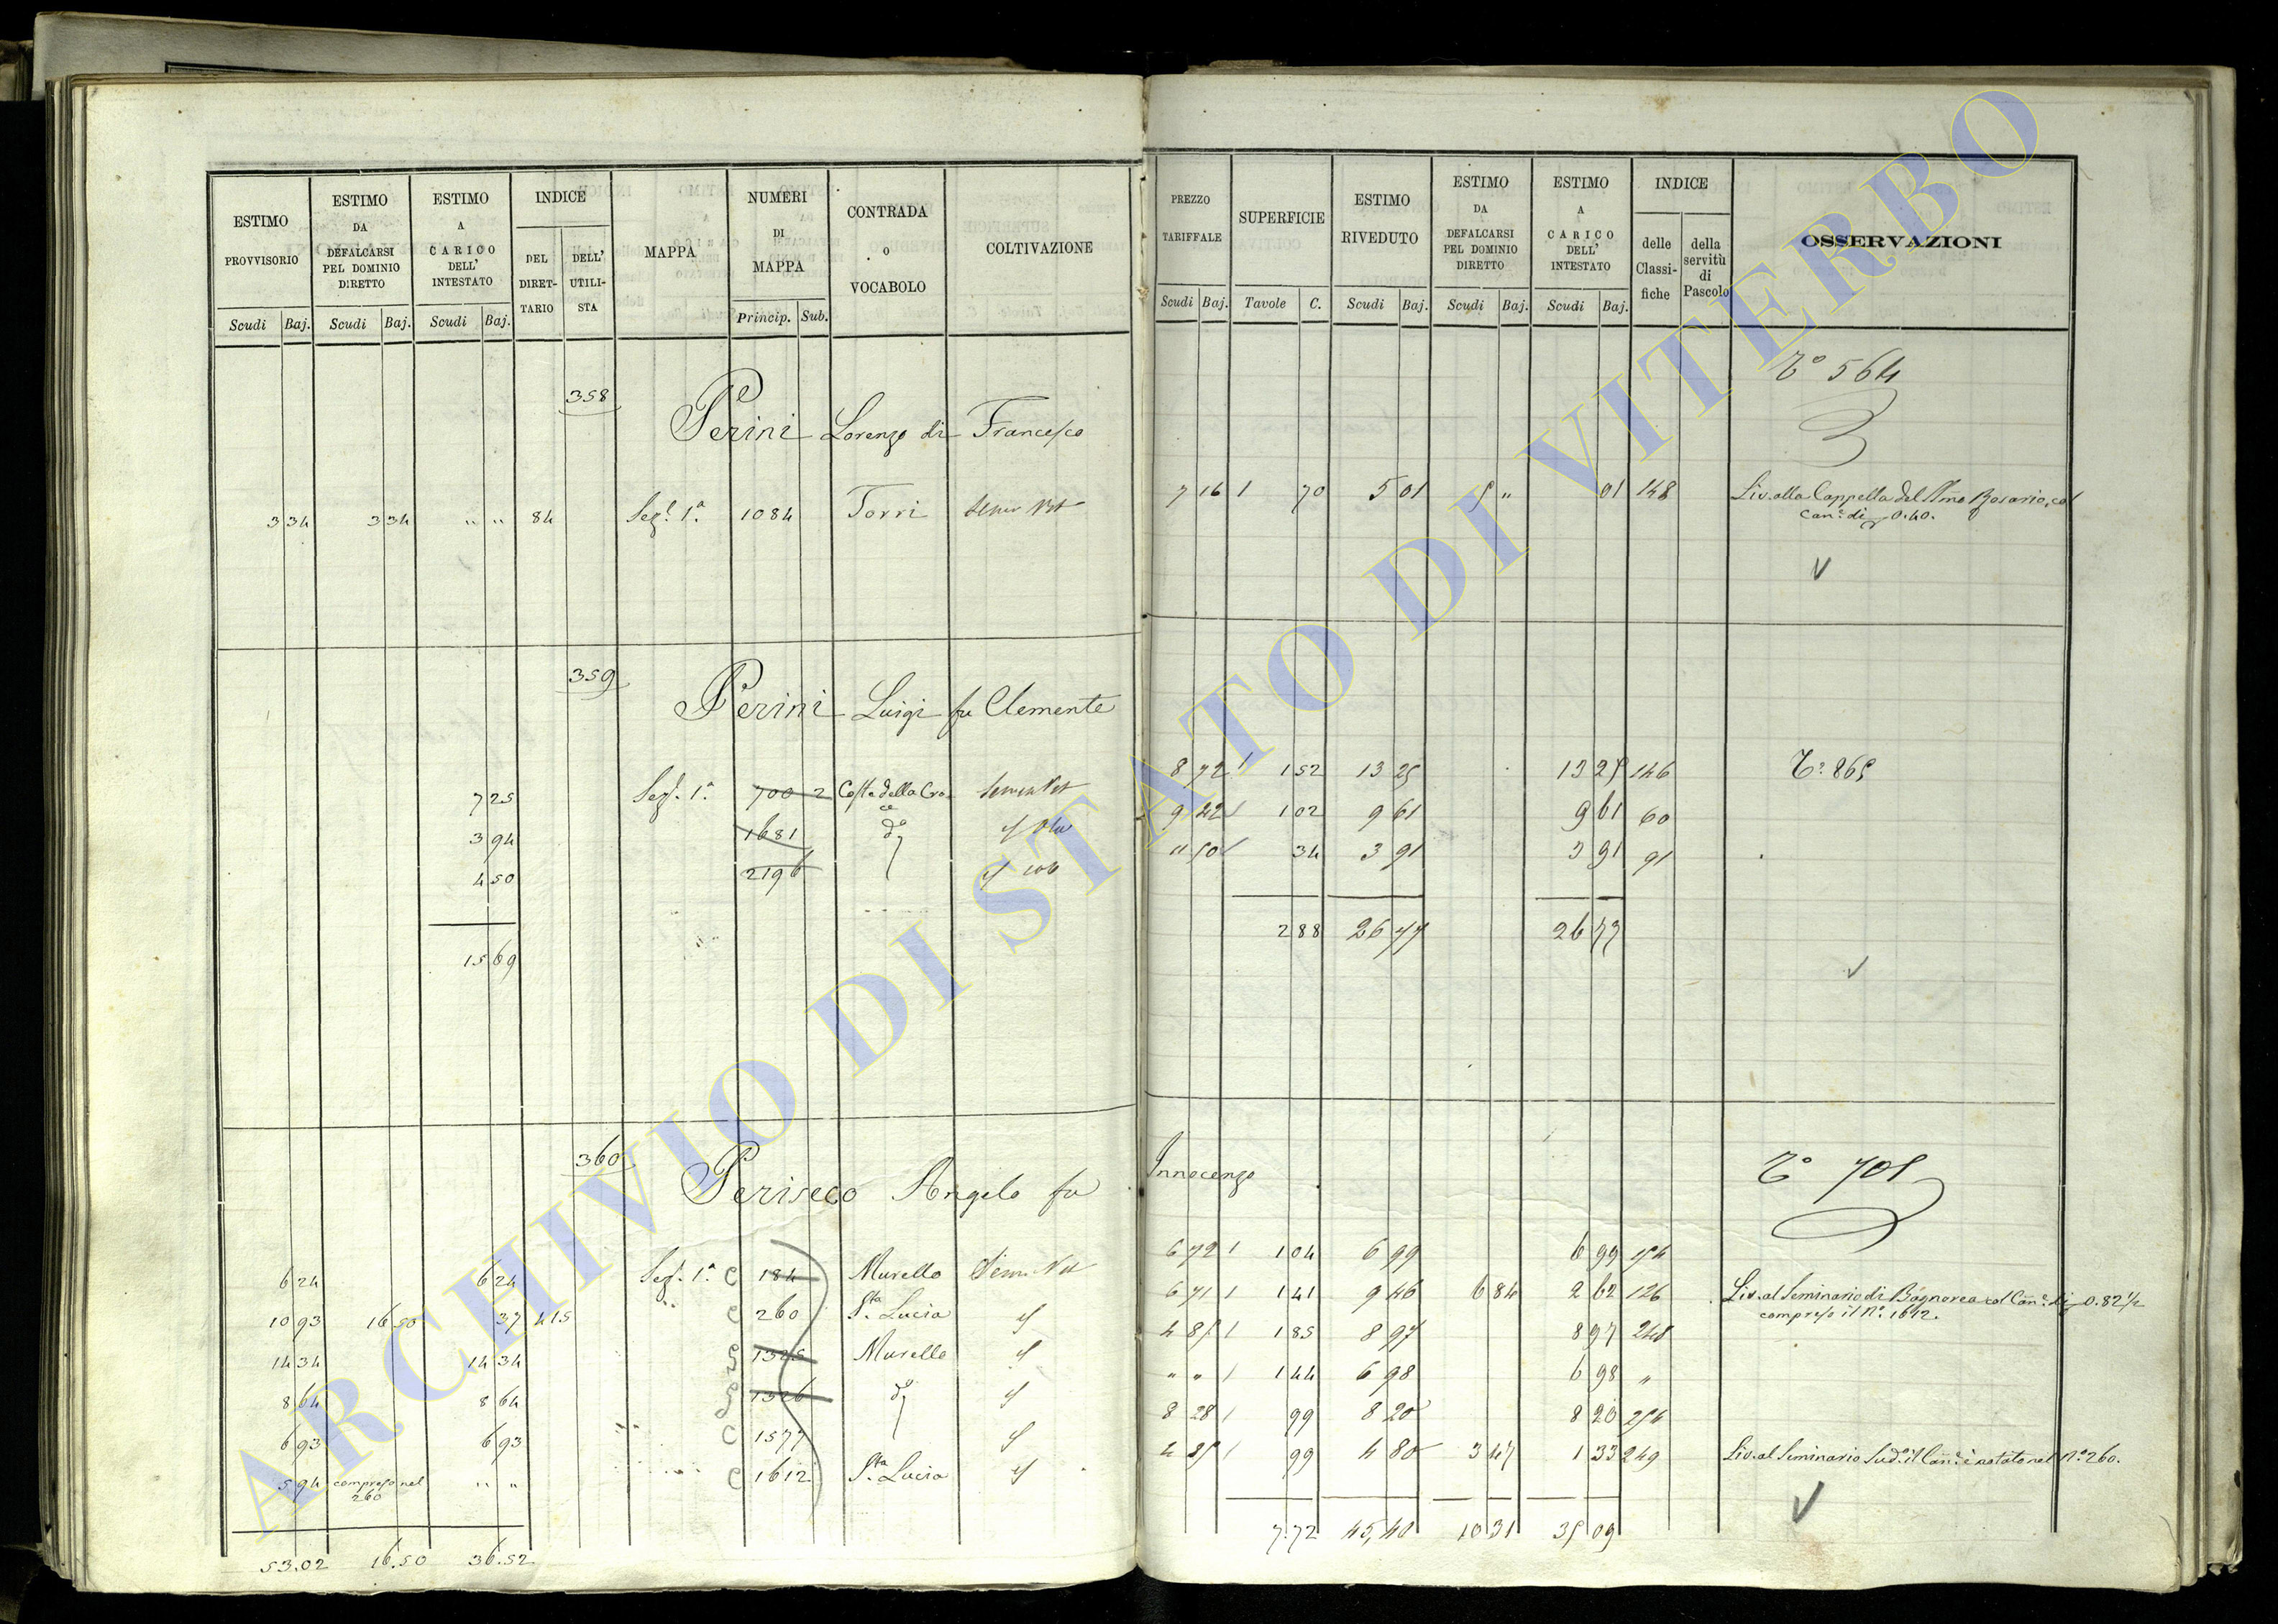 ESTIMO PROVVISORIO | ESTIMO DA DEFALCARSI PEL DOMINIO DIRETTO | ESTIMO A CARICO DELL' INTESTATO | INDICE | MAPPA | NUMERI DI MAPPA | CONTRADA o VOCABOLO | COLTIVAZIONE
DEL DIRETTARIO | DELL' UTILISTA
Scudi Baj. | Scudi Baj. | Scudi Baj. | Princip. Sub.
358
Perini Lorenzo di Francesco
3 34 | 3 34 | " " | 84 | Sez.e 1.a | 1084 | Torri
359
Perini Luigi fu Clemente
7 25 | Sez.e 1.a | 700 2 | Costa della Cro=ce | Semin Vit
3 94 | 1681 | d.o
4 50 | 2196
15 69
360
Periseco Angelo fu
6 24 | 6 24 | Sez.e 1.a | 184 | Murello | Semi Vit
10 93 | 16 50 | 37 | 415 | 260 | S.ta Lucia
14 34 | 14 34 | 1325 | Murello
8 64 | 8 64 | 1326 | d.o
6 93 | 6 93 | 1577
5 94 | compreso nel 260 | " " | 1612 | S.ta Lucia
53.02 | 16.50 | 36.52
PREZZO TARIFFALE | SUPERFICIE | ESTIMO RIVEDUTO | ESTIMO DA DEFALCARSI PEL DOMINIO DIRETTO | ESTIMO A CARICO DELL' INTESTATO | INDICE | OSSERVAZIONI
delle Classifiche | della servitù di Pascolo
Scudi Baj. | Tavole C. | Scudi Baj. | Scudi Baj. | Scudi Baj.
T.o 564
7 16 | 1 70 | 5 01 | 5 " | 01 | 148 | Liv. alla Cappella del SSmo Rosario, col
Can.e di 0.40.
8 72 | 1 52 | 13 25 | 13 25 | 146 | T.o 865
9 42 | 1 02 | 9 61 | 9 61 | 60
11 50 | 34 | 3 91 | 3 91 | 91
2 88 | 26 77 | 26 77
Innocenzo
T.o 705
6 72 | 1 04 | 6 99 | 6 99 | 154
6 71 | 1 41 | 9 46 | 6 84 | 2 62 | 126 | Liv. al Seminario di Bagnorea col Can.e di 0.82 1/2
compreso il N.o 1612.
4 85 | 1 85 | 8 97 | 8 97 | 248
" " | 1 44 | 6 98 | 6 98 | "
8 28 | 99 | 8 20 | 8 20 | 254
4 85 | 99 | 4 80 | 3 47 | 1 33 | 249 | Liv. al Seminario Sud.o il Can.e è notato nel N.o 260.
7.72 | 45,40 | 10 31 | 35 09
ARCHIVIO DI STATO DI VITERBO